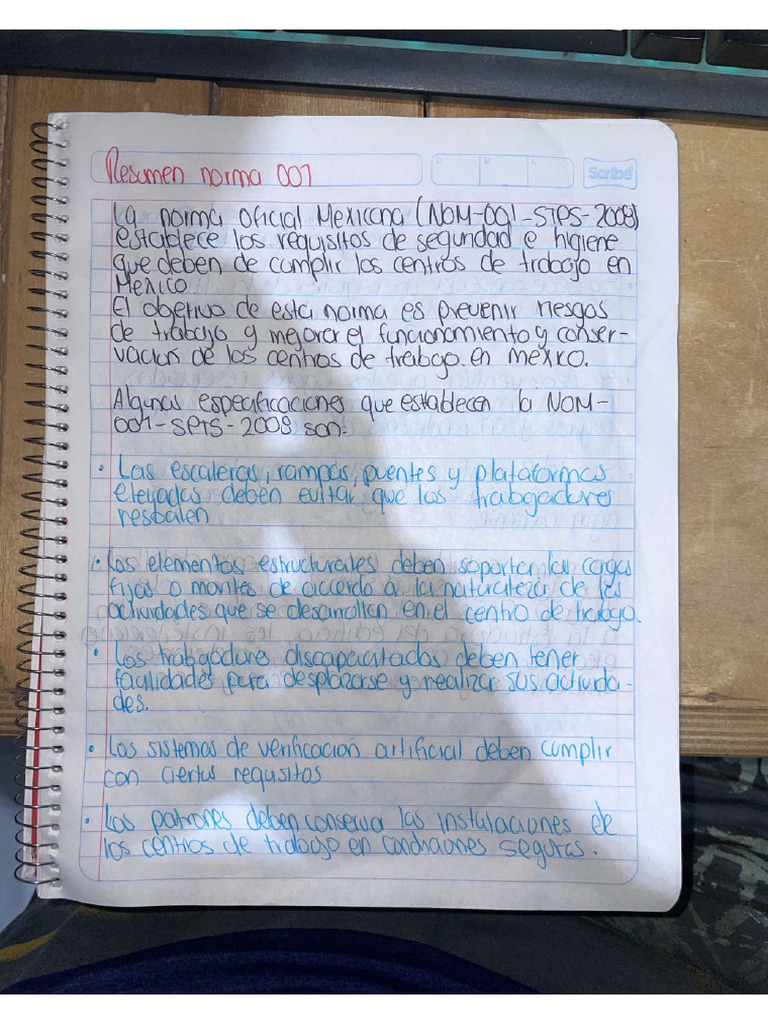 Resumen norma 001
Scribe
La norma oficial Mexicana (NOM-001-STPS-2008)
establece los requisitos de seguridad e higiene
que deben de cumplir los centros de trabajo en
Mexico.
El objetivo de esta norma es prevenir riesgos
de trabajo y mejorar el funcionamiento y conser-
vacion de los centros de trabajo. en mexico.
Algunas especificaciones que establecen la NOM-
001-SPTS-2008 son:
• Las escaleras, rampas, puentes y plataformas
elevadas deben evitar que los trabajadores
resbalen
• Los elementos estructurales deben soportar las cargas
fijas o moviles de acuerdo a la naturaleza de las
actividades que se desarrollan en el centro de trabajo.
• Los trabajadores discapacitados deben tener
facilidades para desplazarse y realizar sus activida-
des.
• Los sistemas de verificacion artificial deben cumplir
con ciertos requisitos
• Los patrones deben conservar las instalaciones de
los centros de trabajo en condiciones seguras.